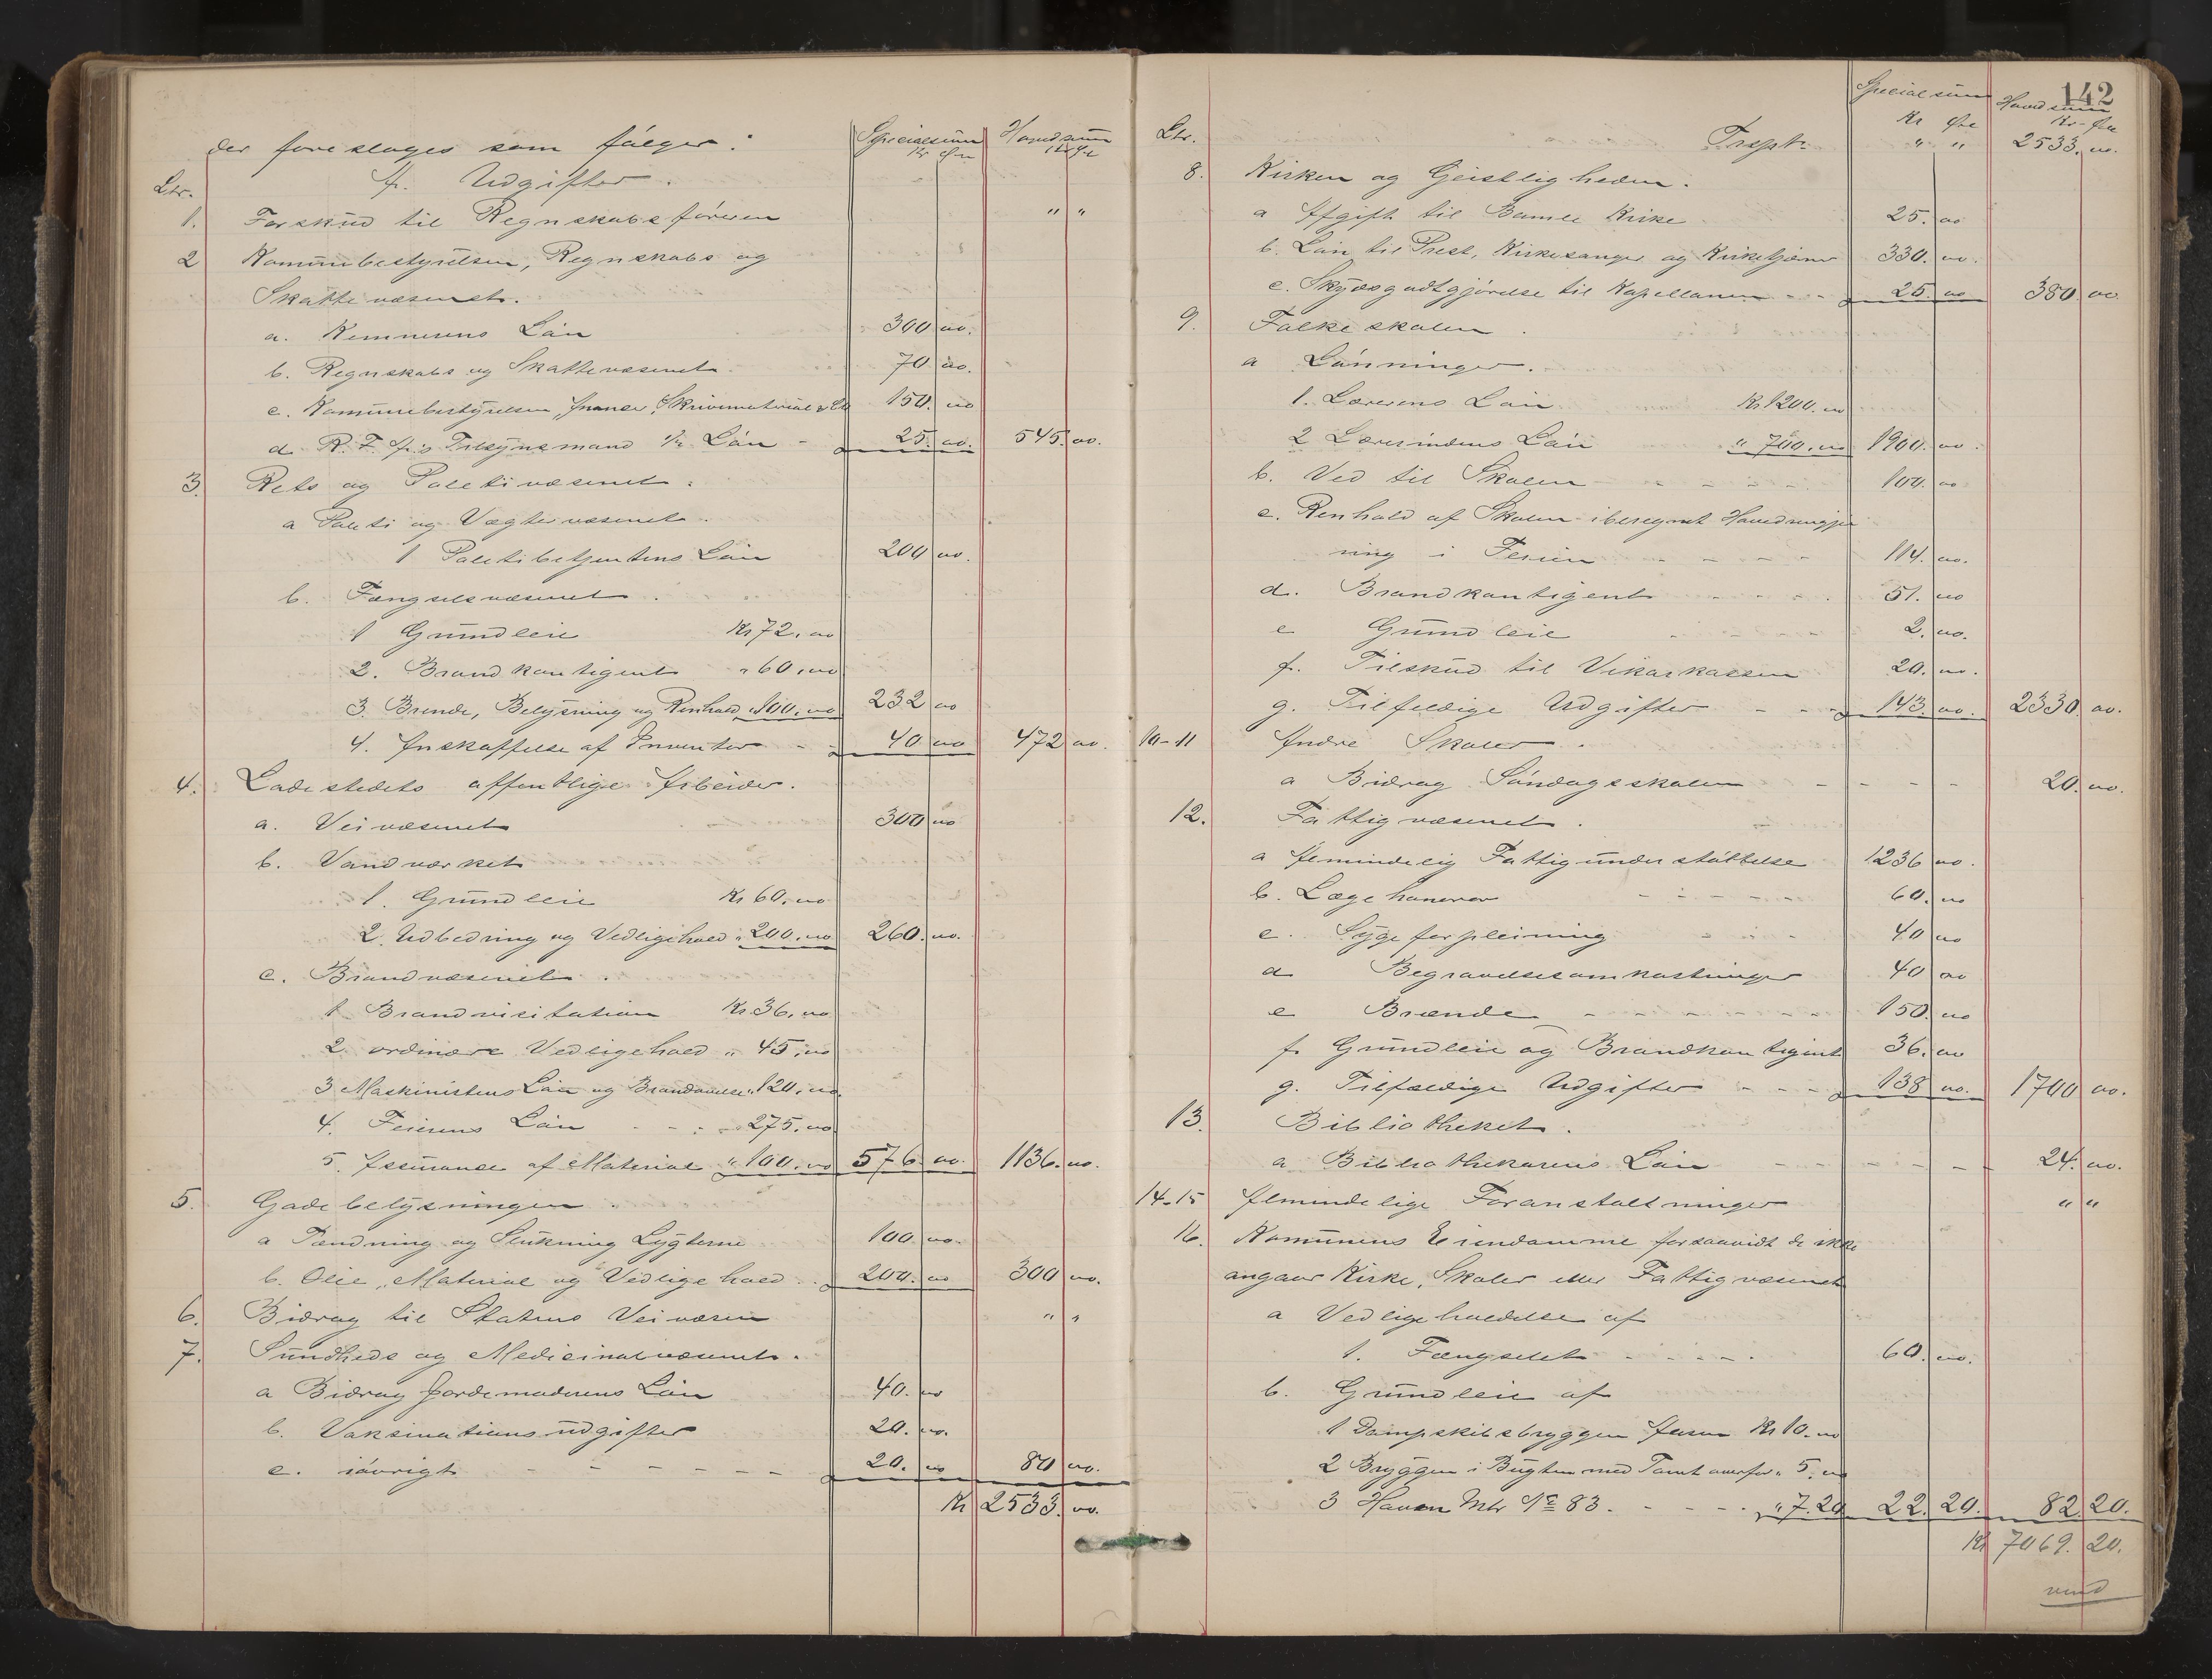 der foreslages som følger: Specialsum Hovedsum
Kr Øre Kr Øre
Ltr. A. Udgifter.
1. Forskud til Regnskabsføreren " "
2 Kommunebestyrelsen, Regnskabs og
Skattevæsenet.
a. Kemnerens Løn 300 00.
b. Regnskabs og Skattevæsenet 70 00.
c. Kommunebestyrelsen, Skrivematerial 150. 00
d. R. F. A's Tilsynsmand Løn - 25. 00. 545. 00.
3. Rets og Politivæsenet.
a Politi og Vægtervæsenet.
1 Politibetjentens Løn 200 00.
b. Fængselsvæsenet.
1 Grundleie Kr 72. 00
2. Brandkontigent " 60. 00
3. Brende, Belysning og Renhold " 100. 00 232 00
4. Anskaffelse af Inventar - - 40 00 472 00.
4. Ladestedets offentlige Arbeider.
a. Veivæsenet 300 00
b. Vandværket
1. Grundleie Kr 60. 00
2. Udbedring og Vedligehold " 200. 00 260. 00.
c. Brandvæsenet.
1 Brandvisitation Kr. 36. 00
2. ordinære Vedligehold " 45. 00
3 Maskinistens Løn og Brandøvelse " 120. 00
4. Feierens Løn - - - 275. 00
5. Assurance af Material " 100. 00 576 00. 1136. 00.
5. Gadebelysningen.
a Tænding og Slukning Lygterne 100 00.
b. Olie, Material og Vedligehold 200. 00 300 00.
6. Bidrag til Statens Veivæsen " "
7. Sundheds og Medicinalvæsenet.
a Bidrag Jordemoderens Løn 40. 00
b. Vaksinationsudgifter 20. 00.
c. iøvrigt - - - - - - 20. 00 80 00.
Kr 2533. 00.
142
Specialsum Hovedsum
Ltr. Kr Øre Kr. Øre
Trspt. " " 2533. 00.
8. Kirken og Geistligheden.
a Afgift til Bamle Kirke 25. 00
b. Løn til Prest, Kirkesanger og Kirketjener 330. 00.
c. Skydsgodtgjørelse til Kapellanen - - 25. 00 380 00
9. Folkeskolen.
a Lønninger.
1. Lærerens Løn Kr 1200. 00
2 Lærerindens Løn " 700. 00 1900. 00.
b. Ved til Skolen - - - - - 100. 00
c. Renhold af Skolen iberegnet Hovedrengjø
ring i Ferien - - - - 114. 00.
d. Brandkontigent - - - - 51. 00
e Grundleie - - - - 2. 00.
f. Tilskud til Vikarkassen 20. 00.
g. Tilfeldige Udgifter - - - 143. 00. 2330. 00.
10-11 Andre Skoler.
a Bidrag Søndagsskolen - - - - 20. 00.
12. Fattigvæsenet.
a Almindelig Fattigunderstøttelse 1236 00.
b. Lægehonorar - - - - - - 60. 00
c. Sygeforpleining - - - 40 00
d Begravelsesomkostninger 40 00
e Brænde - - - - - - - 150. 00
f. Grundleie og Brandkontigent 36. 00
g. Tilfældige Udgifter - - - 138 00. 1700 00.
13. Bibliotheket.
a Bibliothekarens Løn - - - - - - 24. 00.
14-15 Almindelige Foranstaltninger " "
16. Kommunens Eiendomme forsaavidt de ikke
angaar Kirke, Skoler eller Fattigvæsenet
a Vedligeholdelse af
1. Fængselet - - - - - 60. 00.
b. Grundleie af
1 Dampskibsbryggen Kr 10. 00
2 Bryggen i Bugten med Tomt ovenfor " 5. 00
3 Haven Mtr No 83. - - - - " 7. 20 22. 20. 82. 20.
Kr 7069. 20.
vend